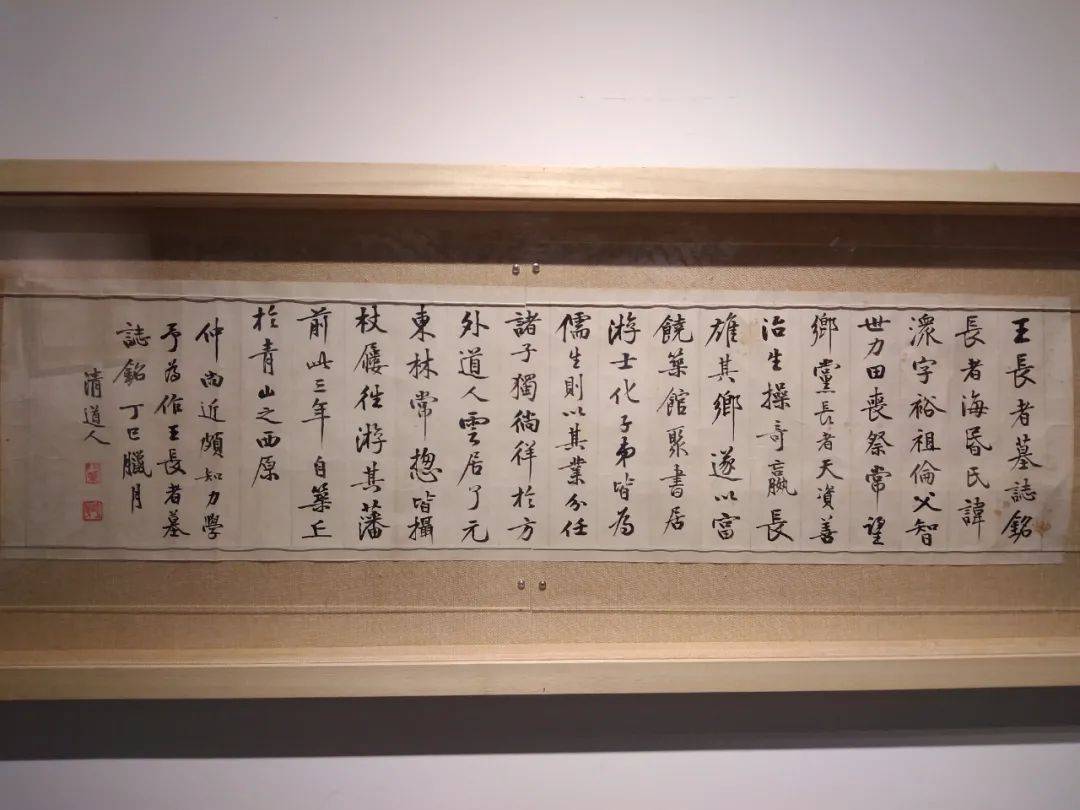 王長者墓誌銘
長者海昏氏諱
潀字裕祖倫父智
世力田喪祭常望
鄉黨長者天資善
治生操奇贏長
雄其鄉遂以富
饒築館聚書居
游士化子弟皆為
儒生則以其業分任
諸子獨徜徉於方
外道人雲居了元
東林常摠皆攝
杖屨往游其藩
前此三年自築丘
於青山之西原
仲尚近頗知力學
予為作王長者墓
誌銘丁巳臘月
清道人